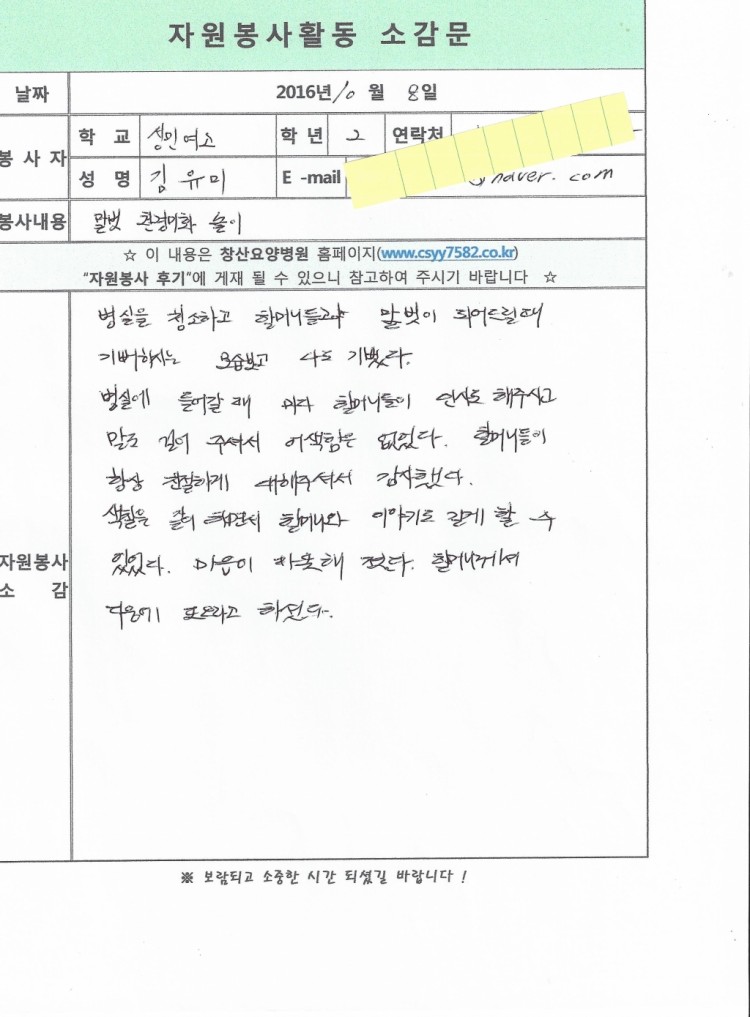 자원봉사활동 소감문
날짜 2016년 10 월 8일
봉사자 학 교 성민여고 학 년 2 연락처
성 명 김유미 E -mail @naver.com
봉사내용 말벗 환경미화 놀이
☆ 이 내용은 창산요양병원 홈페이지(www.csyy7582.co.kr)
"자원봉사 후기"에 게재 될 수 있으니 참고하여 주시기 바랍니다 ☆
자원봉사 소 감
병실을 청소하고 할머니들과 말벗이 되어드릴때
기뻐하시는 모습보고 나도 기뻤다.
병실에 들어갈 때 마다 할머니들이 인사도 해주시고
말도 걸어 주셔서 어색함은 없었다. 할머니들이
항상 친절하게 대해주셔서 감사했다.
색칠을 같이 하면서 할머니와 이야기도 길게 할 수
있었다. 마음이 따뜻해 졌다. 할머니께서
다음에 또오라고 하셨다.
※ 보람되고 소중한 시간 되셨길 바랍니다 !